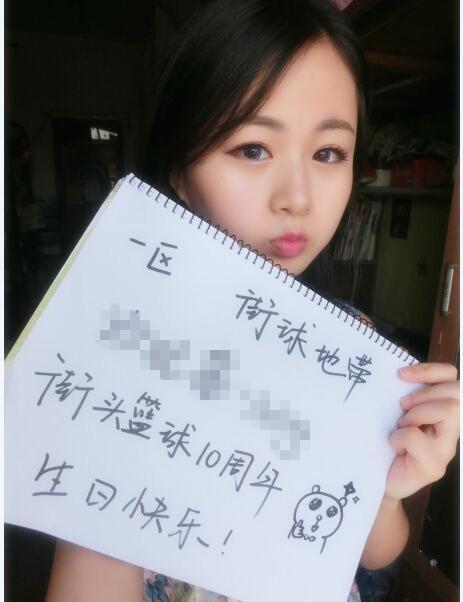 一区 街球地带
街头篮球10周年
生日快乐!